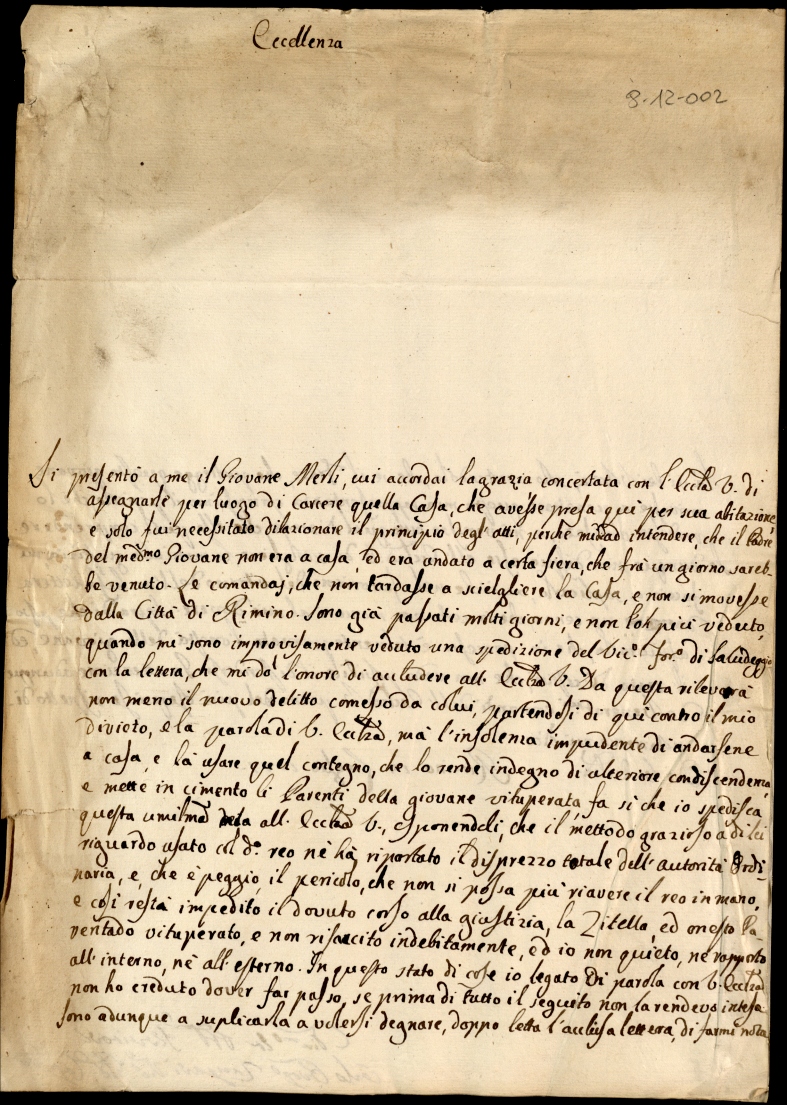 Eccellenza
8-12-002
Si presentò a me il Giovane Merli, cui accordai la grazia concertata con l'Ecclza V. di
assegnarle per luogo di Carcere quella Casa, che avesse presa quì per sua abitazione,
e solo fui necessitato dilazionare il principio degl'atti, perche intendere, che il Padre
del medmo Giovane non era a casa, ed era andato a certa fiera, che frà un giorno sareb-
be venuto. Le comandaj, che non tardasse a scielgliere la Casa, e non si movesse
dalla Città di Rimino. Sono già passati molti giorni, e non l'ok più veduto,
quando mi sono improvisamente veduto una spedizione del Vico. Foro. di Saludeggio
con la lettera, che mi dò l'onore di acludere all'Ecclza V. Da questa rileverà
non meno il nuovo delitto comesso da colui, partendosi di quì contro il mio
divieto, e la parola di V. Ecclza, mà l'insolenza impudente di andarsene
a casa, e là usare quel contegno, che lo rende indegno di ulteriore condiscendenza,
e mette in cimento li Parenti della giovane vituperata fa sì che io spedisca
questa umilma all'Ecclza V., esponendoli, che il mettodo grazioso a di lei
riguardo usato col do. reo nè hà riportato il disprezzo totale dell'autorità Ordi-
naria, e, che è peggio, il pericolo, che non si possa più riavere il reo in mano,
e così resta impedito il dovuto corso alla giustizia, la Zitella, ed onesto Pa-
rentado vituperato, e non risarcito indebitamente, ed io non quieto, nè rapporto
all'interno, nè all'esterno. In questo stato di cose io legato di parola con V. Ecclza
non ho creduto dover far passo, se prima di tutto il seguito non la rendevo intesa.
Sono adunque a suplicarla a volersi degnare, doppo letta l'aclusa lettera, di farmi nota